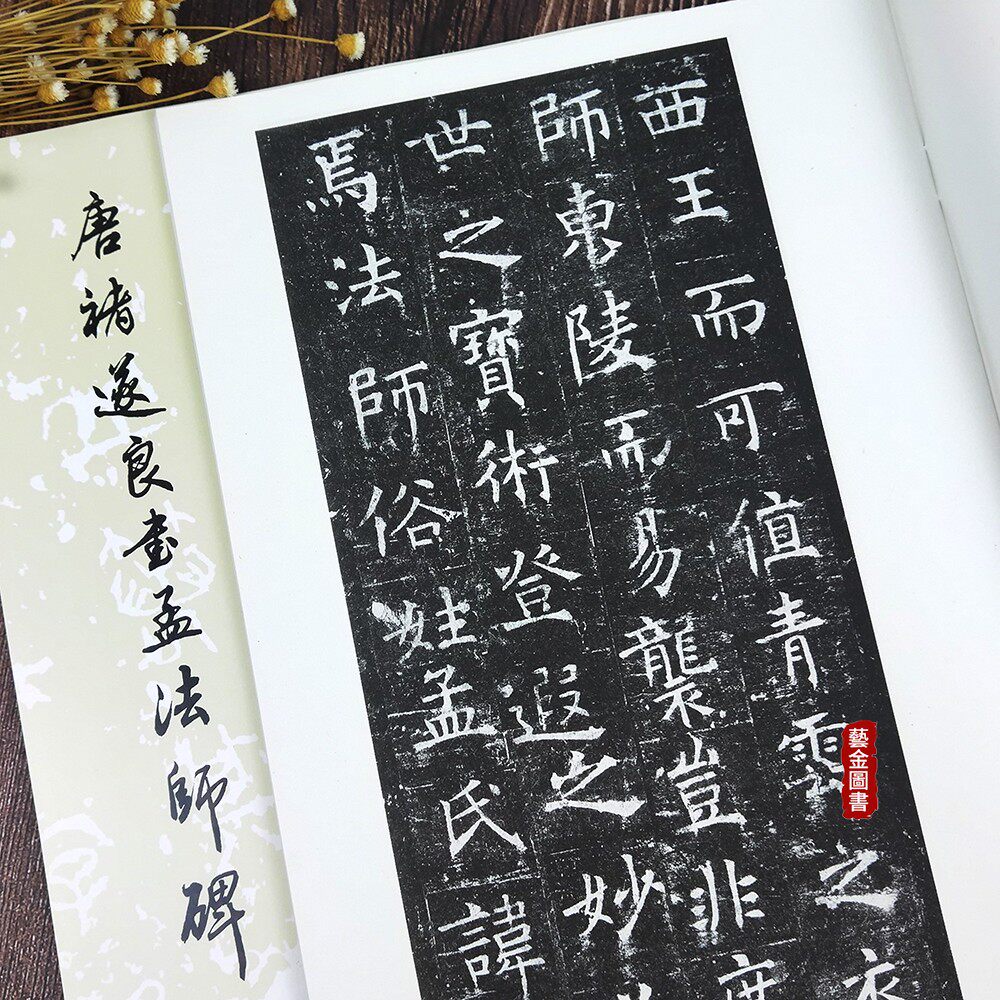 唐褚遂良書孟法師碑
西王而可值青雲之衣
師東陵而易襲豈非度
世之寶術登遐之妙
焉法師俗姓孟氏諱
藝金圖書